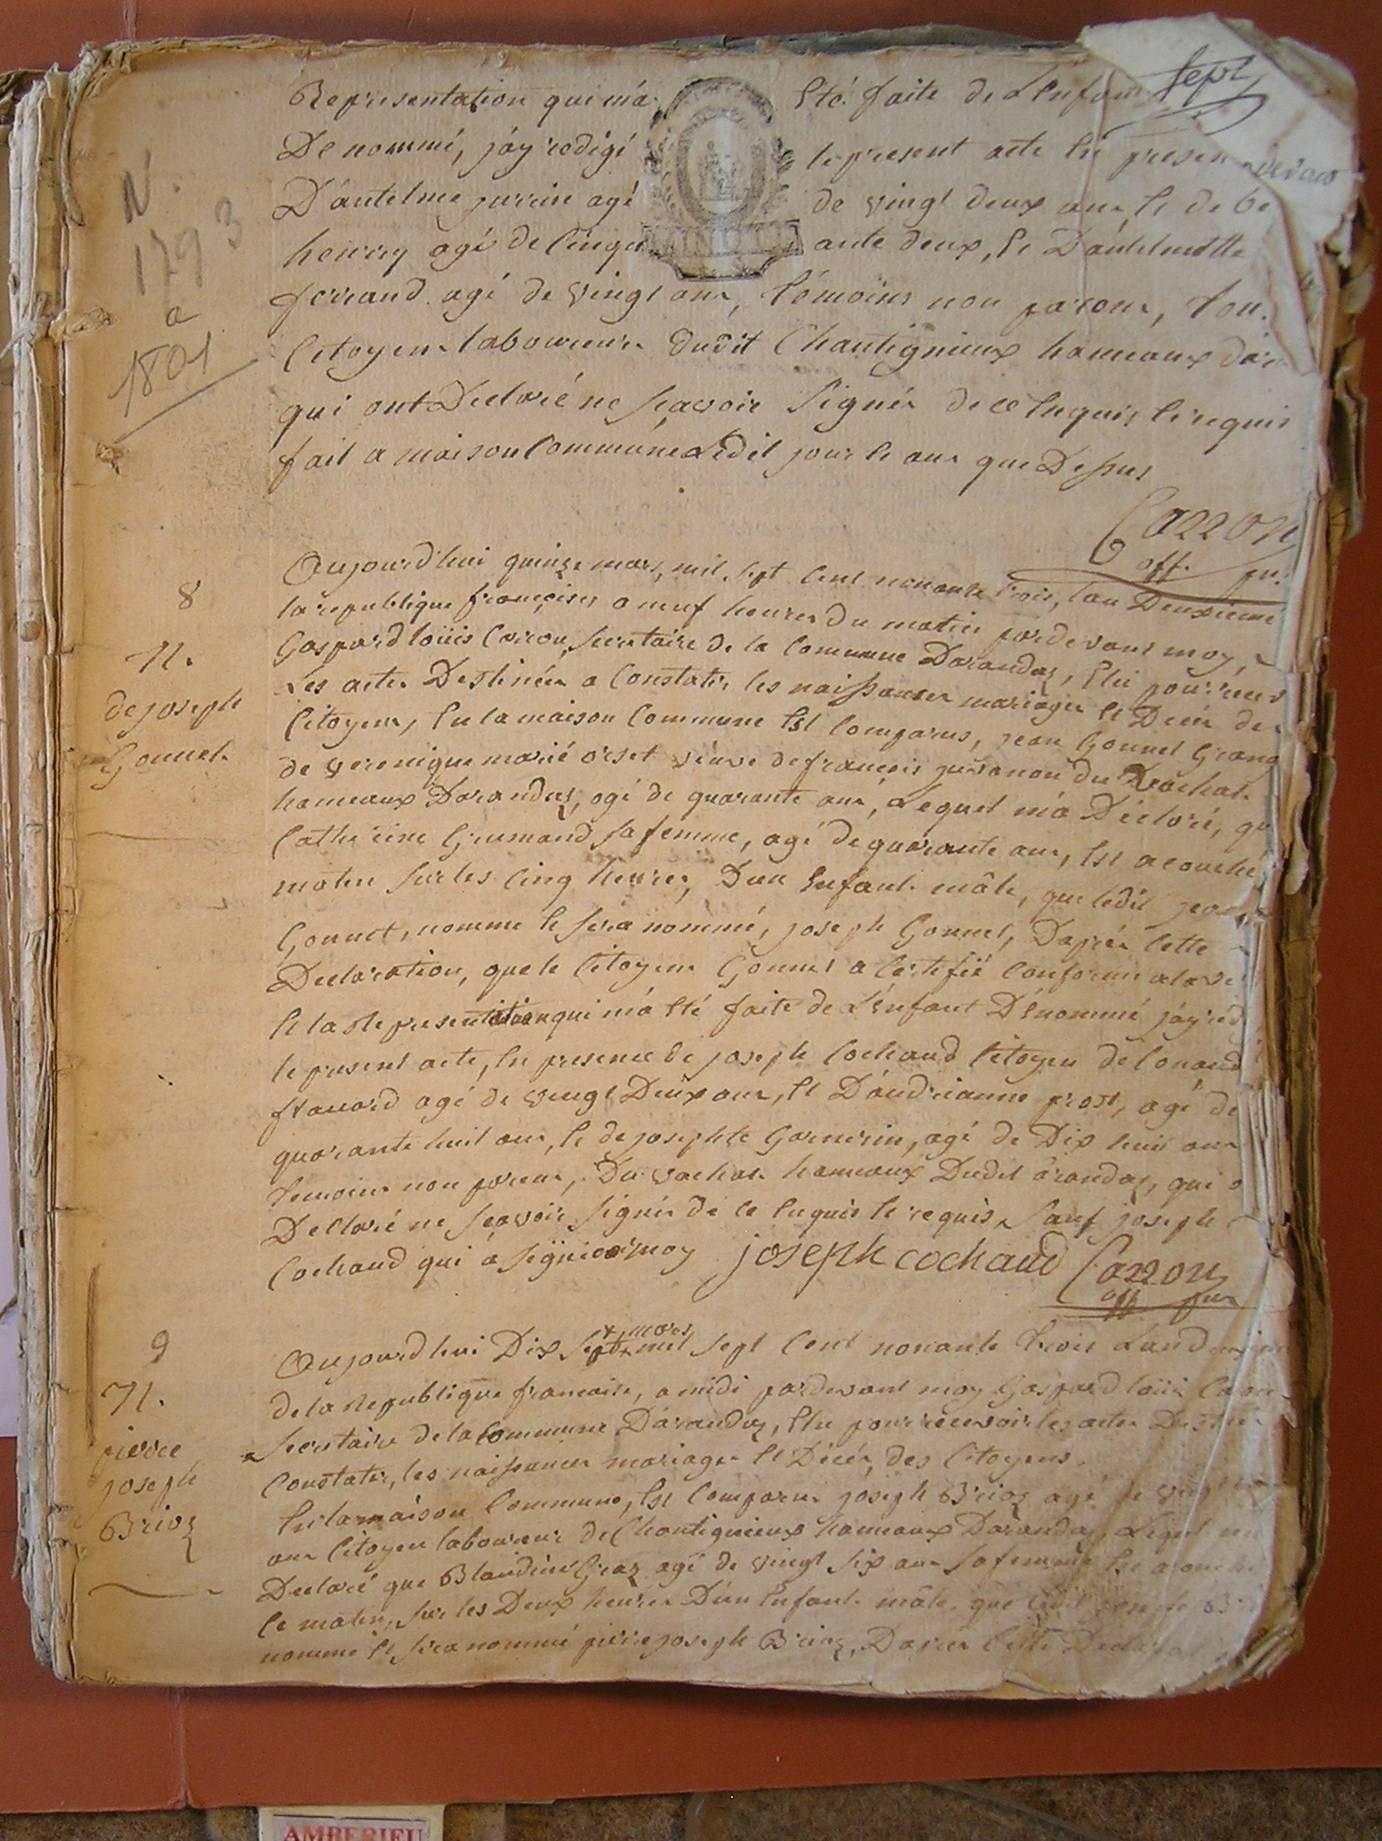 sept
N.
1793
a
1801
Representation qui m'a Eté faite de L'Enfant
Denommé, j'ay redigé le present acte En presence
D'antelme juvin agé de vingt deux ans, Et de
henry agé de Cinquante deux, Et D'antelmette
ferrand agé de vingt ans, témoins non parens, tous
Citoyens laboureurs dudit Chantignieux hameaux
qui ont Declaré ne scavoir signér de ce Enquis Et requis
fait a maison Commune Ledit jour Et ans que Dessus
Carron
off. pu.
8
N.
de joseph
Gonnet.
Aujourd'hui quinze mars, mil sept Cent nonante trois, l'an Deuxieme
la republique françoises a neuf heures du matin pardevant moy,
Gaspard loüis Carron, secretaire de la Commune Darandaz, Elu pour
Les actes Destinées a Constater les naissances mariages Et Décés des
Citoyens, En la maison Commune Est Comparus, jean Gonnet Grang
de verenique marié orset veuve de francois du vachat
hameaux Darandaz, agé de quarante ans, Lequel m'a Déclaré,
Catherine Grumand sa femme, agé de quarante ans, Est acouché
matin sur les Cinq heures, D'un Enfant mâle, que ledit jean
Gonnet, nomme Et sera nommé, joseph Gonnet, D'aprés Cette
Declaration, que le Citoyens Gonnet a Certifié Conforme a la ve
Et la Representation qui m'a Eté faite de L'Enfant Dénommé j'ay red
le present acte, En presence de joseph Cochaud Citoyen de
agé de vingt Deux ans, Et D'andrianne prost, agé de
quarante huit ans, Et de josephte Garnerin, agé de Dix huit ans
temoins non parens, Du vachat hameaux Dudit arandaz, qui o
Declaré ne sçavoir signér de ce Enquis Et requis, sauf joseph
Cochaud qui a signé moy joseph cochaud Carron
off pu
9
N.
pierre
joseph
Brioz
mars
Aujourd'hui Dix sept mil sept Cent nonante trois L'an
de la Republique francaise, a midi pardevant moy Gaspard loüis
secretaire de la Commune D'arandaz, Elu pour recevoir les actes
Constater, les naissances mariages Et Décés, des Citoyens.
En la maison Commune, Est Comparus joseph Brioz agé de vingt
ans Citoyen laboureur de Chantignieux hameaux Darandaz, Lequel m'a
Declaré que Blandine Graz agé de vingt six ans sa femme Est acouché
Ce matin, sur les Deux heures D'un Enfant mâle que ledit joseph
nomme Et sera nommé pierre joseph Brioz, D'apres Cette
AMBERIEU